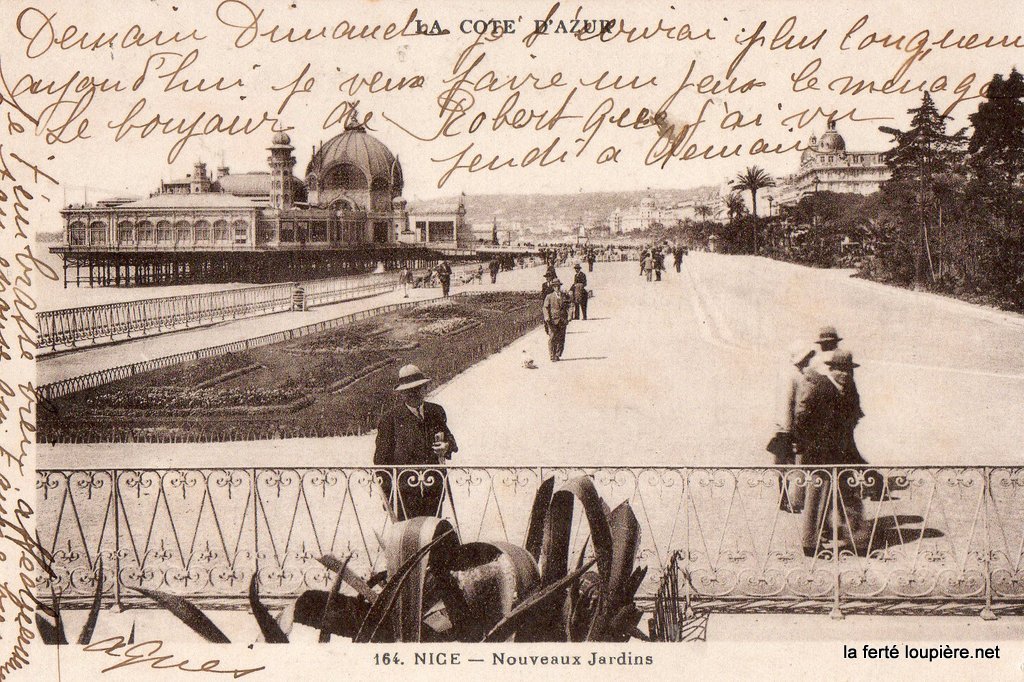 LA COTE D'AZUR
Demain Dimanche je t'ecrirai plus longuement
aujourd'hui je veux faire un peux le menage
Le bonjour de Robert que j'ai vu
jeudi a demain
Je t'embrasse bien
Agnes
164. NICE — Nouveaux Jardins
la ferté loupière.net